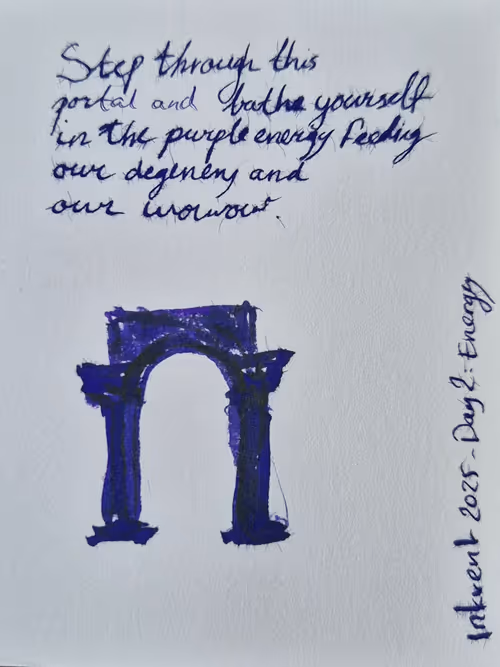 Step through this
portal and bathe yourself
in the purple energy feeding
our degenery and
our
Inkvent 2025 - Day 2: Energy